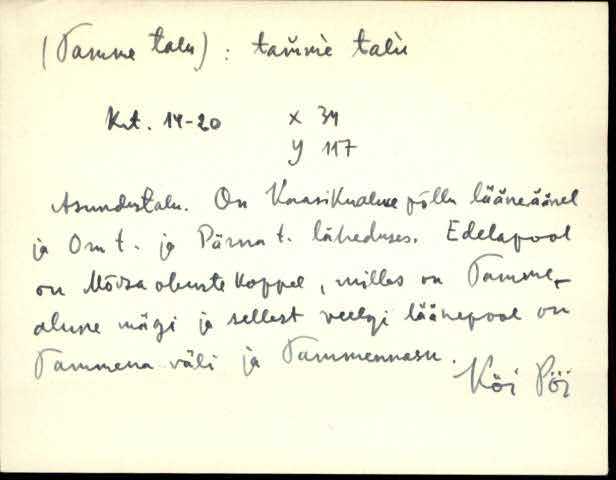 (Tamme talu) : tam̀mè talù
Krt. 14-20 x 34
y 117
Asundustalu. On Kaasikualuse põllu lääneäärel
ja Oru t. ja Pärna t. läheduses. Edelapool
on Mõisa obuste koppel, milles on Tamme-
alune mägi ja sellest veelgi läänepool on
Tammena väli ja Tammennasu.
Köi Pöi